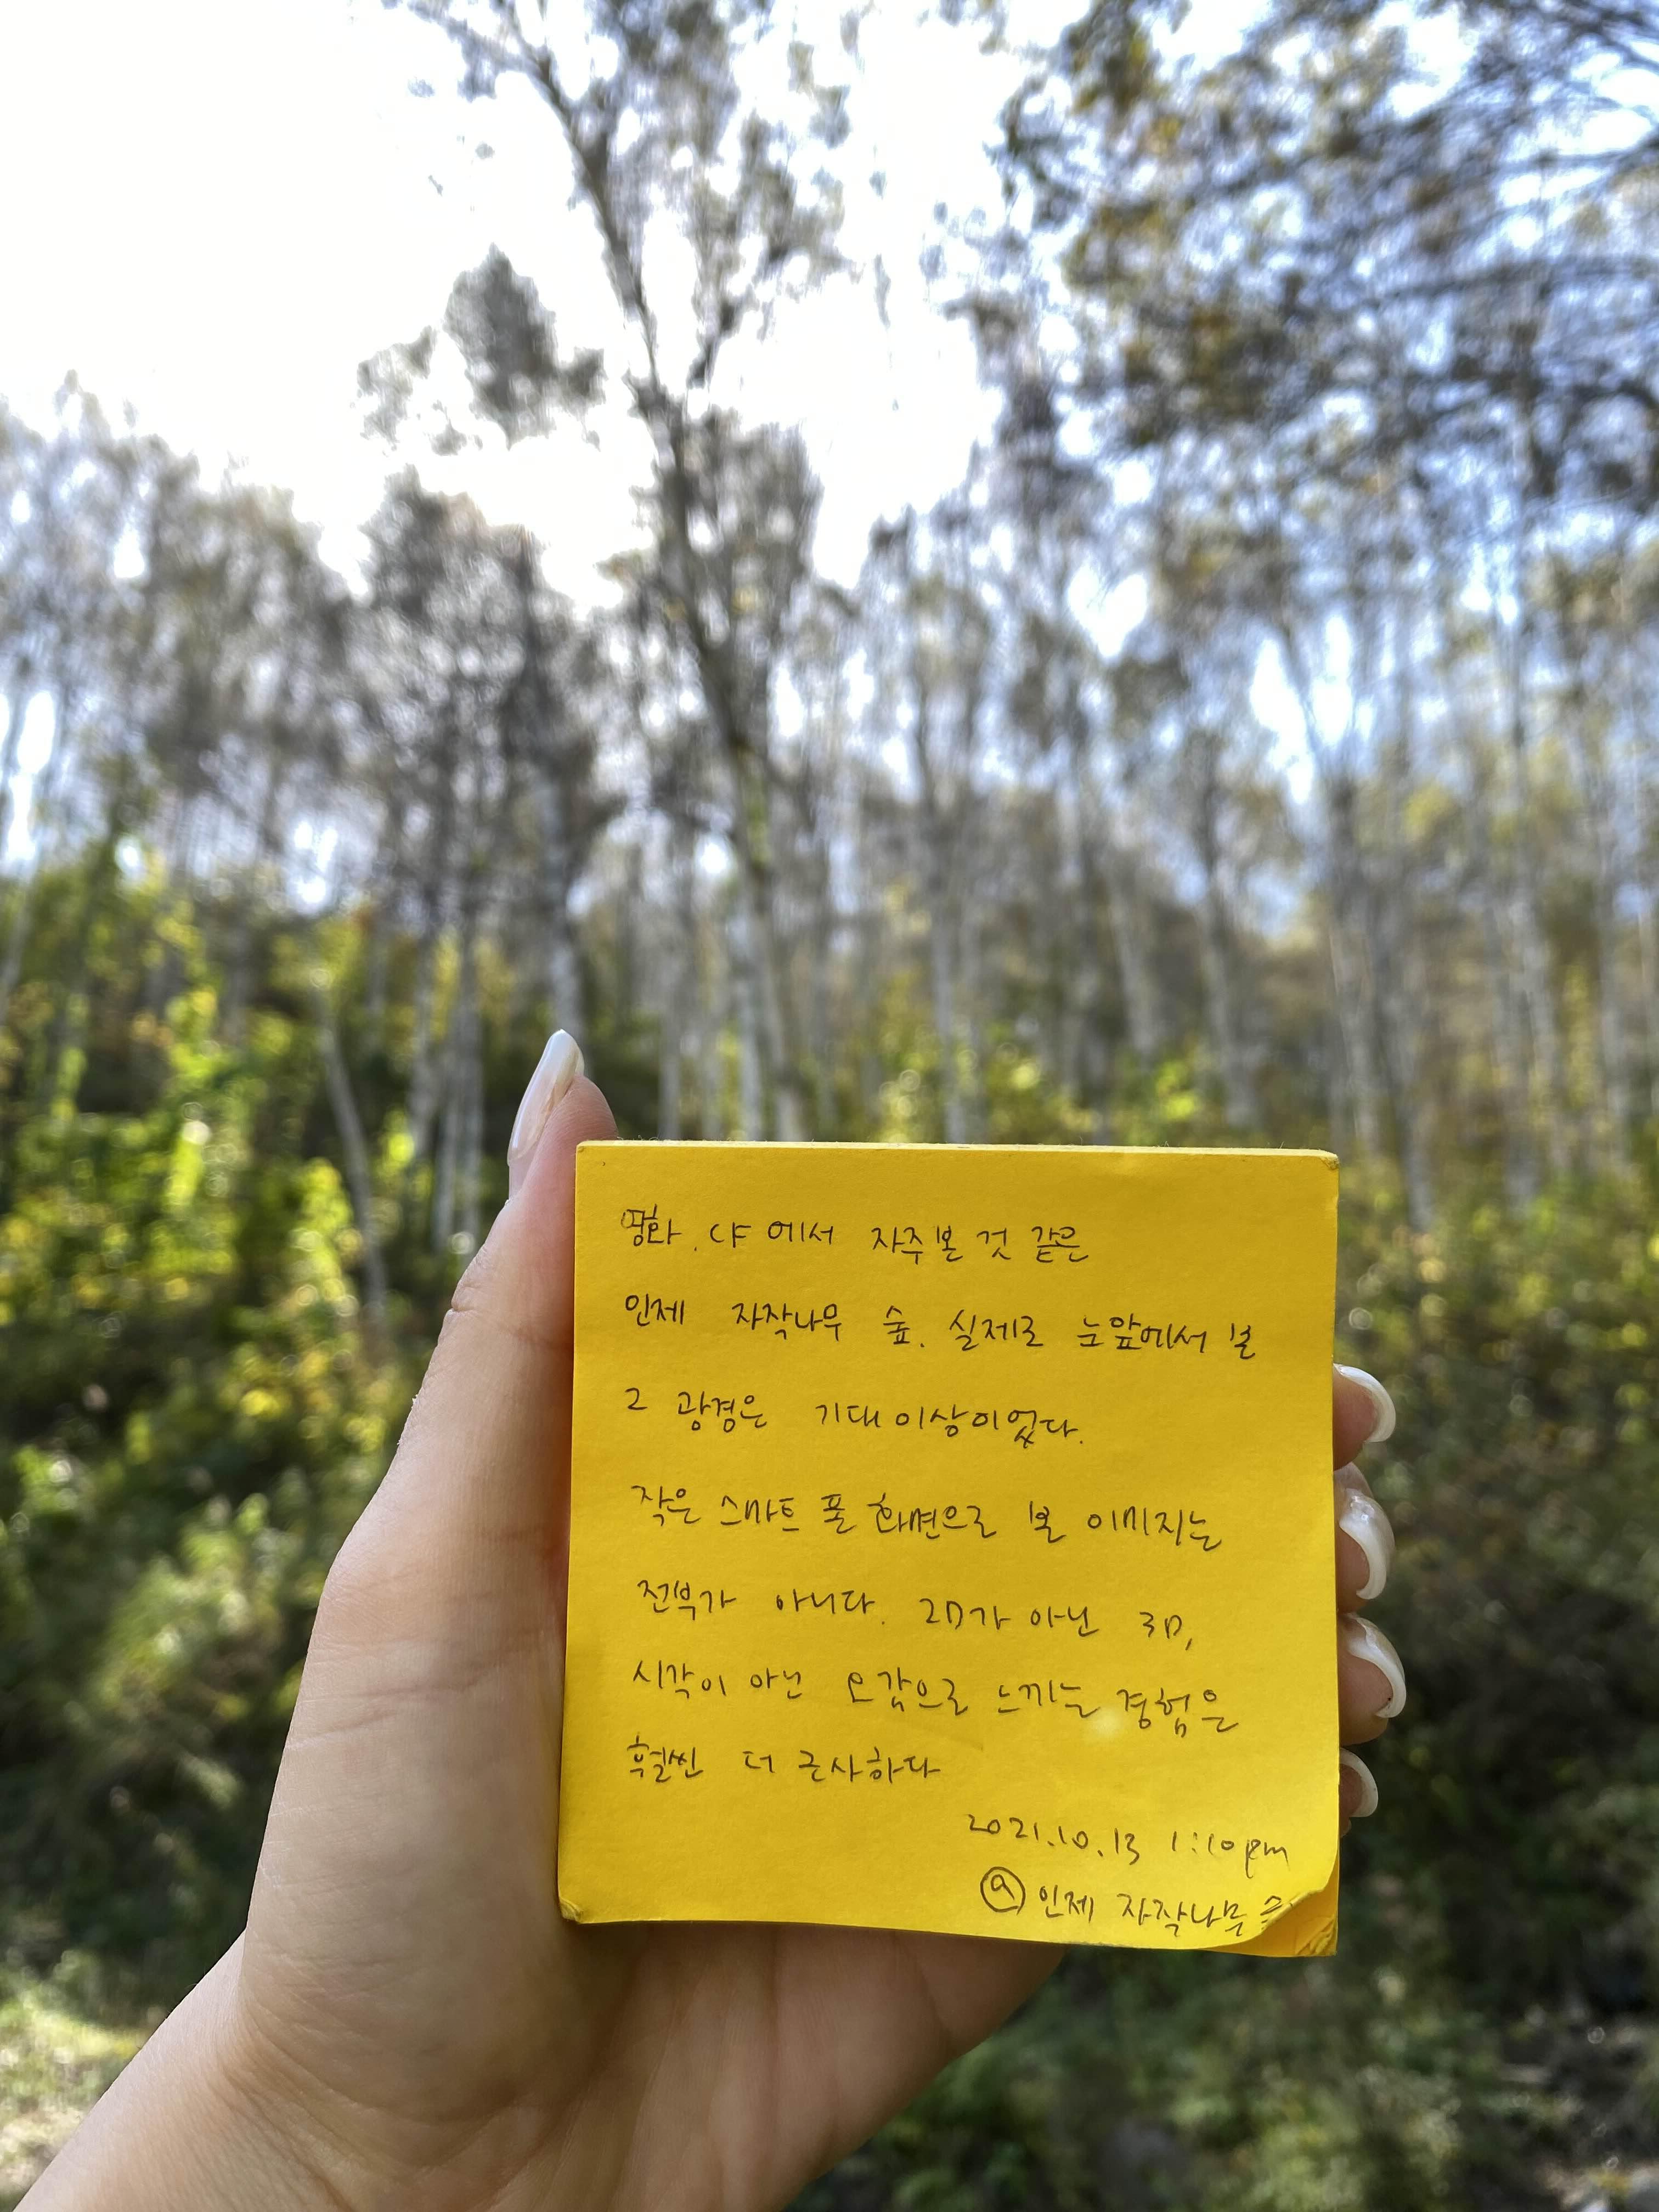 영화. CF 에서 자주본 것 같은
인제 자작나무 숲. 실제로 눈앞에서 본
그 광경은 기대 이상이었다.
작은 스마트 폰 화면으로 본 이미지는
전부가 아니다. 2D가 아닌 3D,
시각이 아닌 오감으로 느끼는 경험은
훨씬 더 근사하다
2021.10.13 1:10pm
@ 인제 자작나무 숲